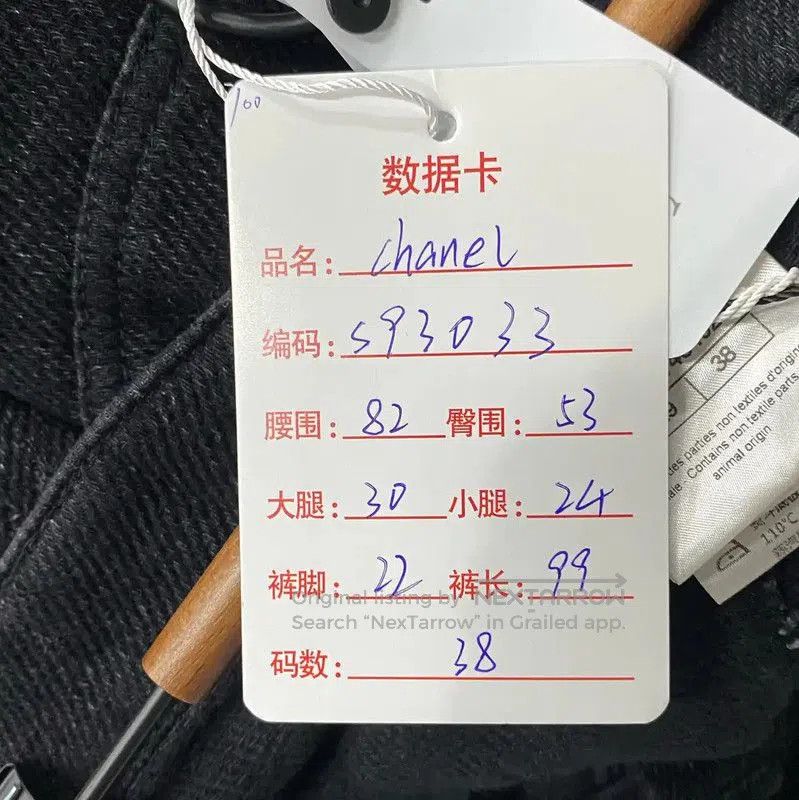 100
数据卡
品名: chanel
编码: S93033
腰围: 82 臀围: 53
大腿: 30 小腿: 24
裤脚: 22 裤长: 99
Original listing by NEXTARROW
Search “NexTarrow” in Grailed app.
码数: 38
38
parties non textiles d'origine
Contains non textile parts
animal origin
110°C